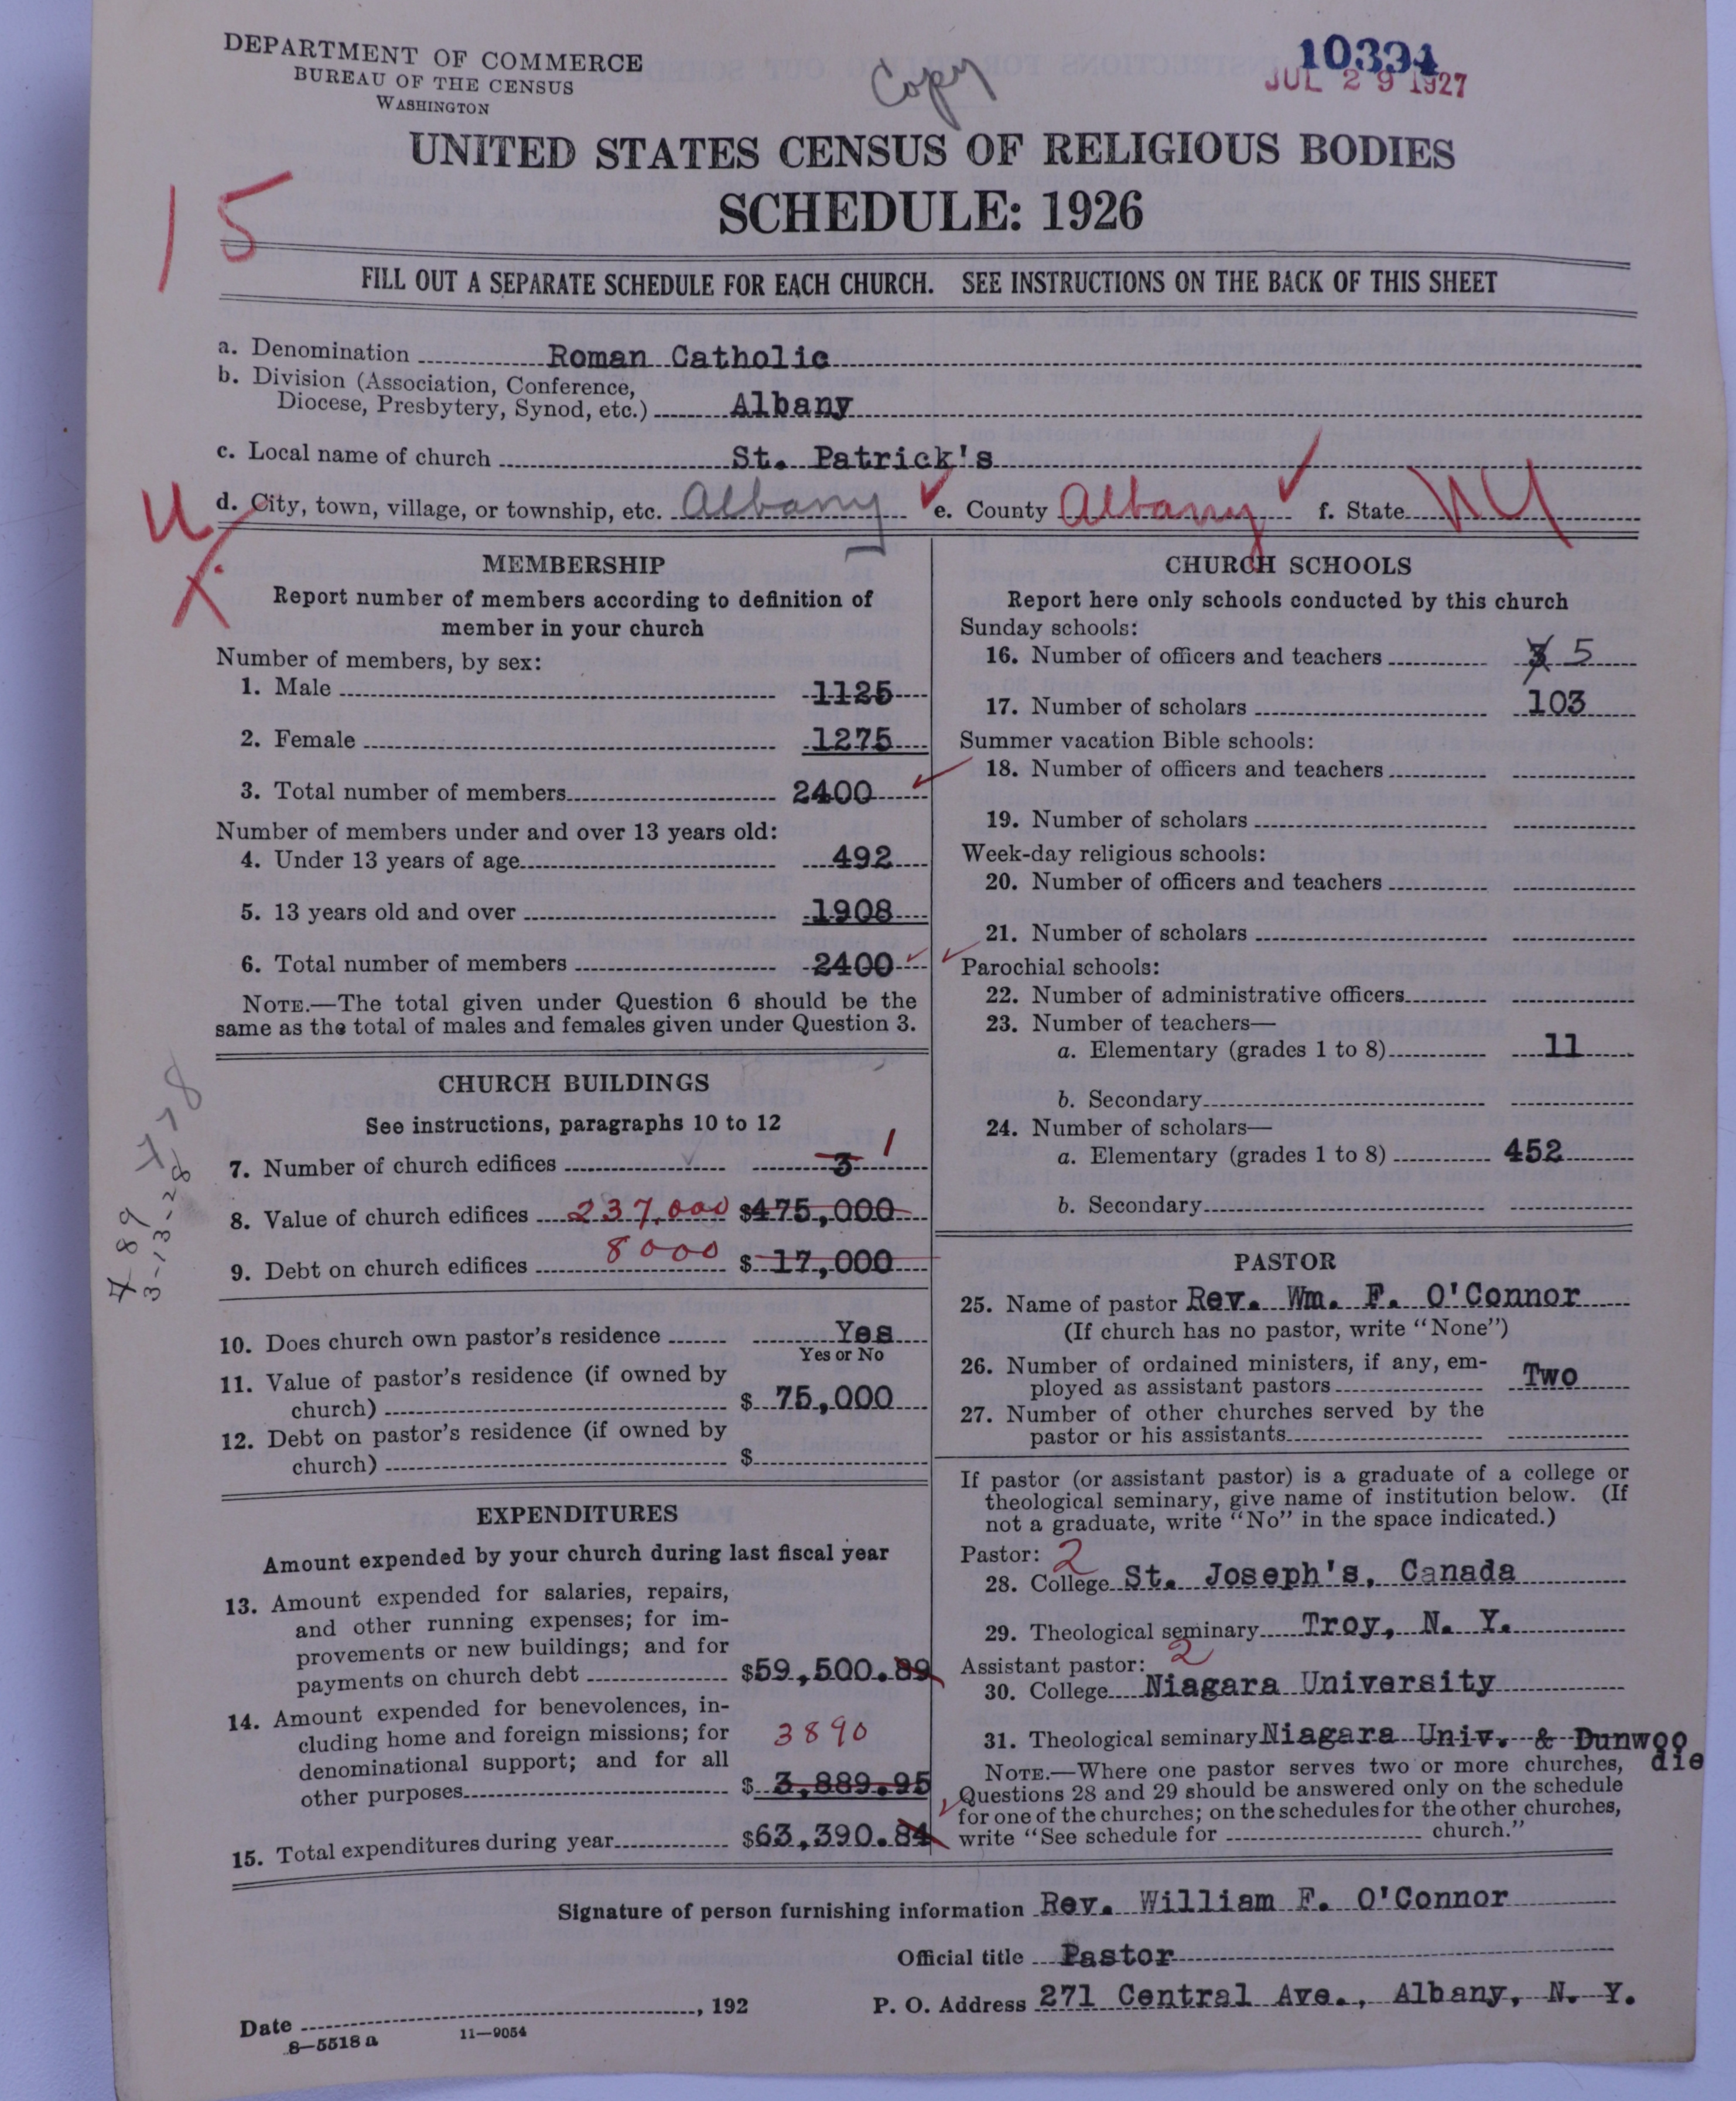 DEPARTMENT OF COMMERCE
BUREAU OF THE CENSUS
WASHINGTON
Copy
10394
JUL 29 1927
UNITED STATES CENSUS OF RELIGIOUS BODIES
SCHEDULE: 1926
15
FILL OUT A SEPARATE SCHEDULE FOR EACH CHURCH. SEE INSTRUCTIONS ON THE BACK OF THIS SHEET
a. Denomination Roman Catholic
b. Division (Association, Conference,
Diocese, Presbytery, Synod, etc.) Albany
c. Local name of church St. Patrick's
d. City, town, village, or township, etc. Albany e. County Albany f. State NY
MEMBERSHIP
Report number of members according to definition of
member in your church
Number of members, by sex:
1. Male 1125
2. Female 1275
3. Total number of members 2400
Number of members under and over 13 years old:
4. Under 13 years of age 492
5. 13 years old and over 1908
6. Total number of members 2400
NOTE.—The total given under Question 6 should be the
same as the total of males and females given under Question 3.
CHURCH BUILDINGS
See instructions, paragraphs 10 to 12
7. Number of church edifices 3 1
8. Value of church edifices 237,000 $475,000
9. Debt on church edifices 8000 $17,000
3-13-28
10. Does church own pastor's residence Yes
Yes or No
11. Value of pastor's residence (if owned by
church) $75,000
12. Debt on pastor's residence (if owned by
church) $
EXPENDITURES
Amount expended by your church during last fiscal year
13. Amount expended for salaries, repairs,
and other running expenses; for im-
provements or new buildings; and for
payments on church debt $59,500.89
14. Amount expended for benevolences, in-
cluding home and foreign missions; for
denominational support; and for all
other purposes 3890 $3,889.95
15. Total expenditures during year $63,390.84
CHURCH SCHOOLS
Report here only schools conducted by this church
Sunday schools:
16. Number of officers and teachers 3 5
17. Number of scholars 103
Summer vacation Bible schools:
18. Number of officers and teachers
19. Number of scholars
Week-day religious schools:
20. Number of officers and teachers
21. Number of scholars
Parochial schools:
22. Number of administrative officers
23. Number of teachers—
a. Elementary (grades 1 to 8) 11
b. Secondary
24. Number of scholars—
a. Elementary (grades 1 to 8) 452
b. Secondary
PASTOR
25. Name of pastor Rev. Wm. F. O'Connor
(If church has no pastor, write "None")
26. Number of ordained ministers, if any, em-
ployed as assistant pastors Two
27. Number of other churches served by the
pastor or his assistants
If pastor (or assistant pastor) is a graduate of a college or
theological seminary, give name of institution below. (If
not a graduate, write "No" in the space indicated.)
Pastor: 2
28. College St. Joseph's, Canada
29. Theological seminary Troy, N. Y.
Assistant pastor: 2
30. College Niagara University
31. Theological seminary Niagara Univ. & Dunwoo
die
NOTE.—Where one pastor serves two or more churches,
Questions 28 and 29 should be answered only on the schedule
for one of the churches; on the schedules for the other churches,
write "See schedule for church."
Signature of person furnishing information Rev. William F. O'Connor
Official title Pastor
Date , 192 P. O. Address 271 Central Ave., Albany, N. Y.
8—5518 a 11—9054